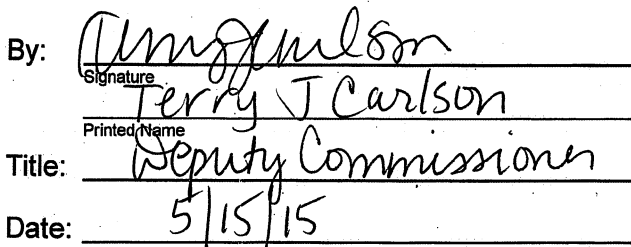 By:
Signature
Terry J Carlson
Printed Name
Title: Deputy Commissioner
Date: 5/15/15